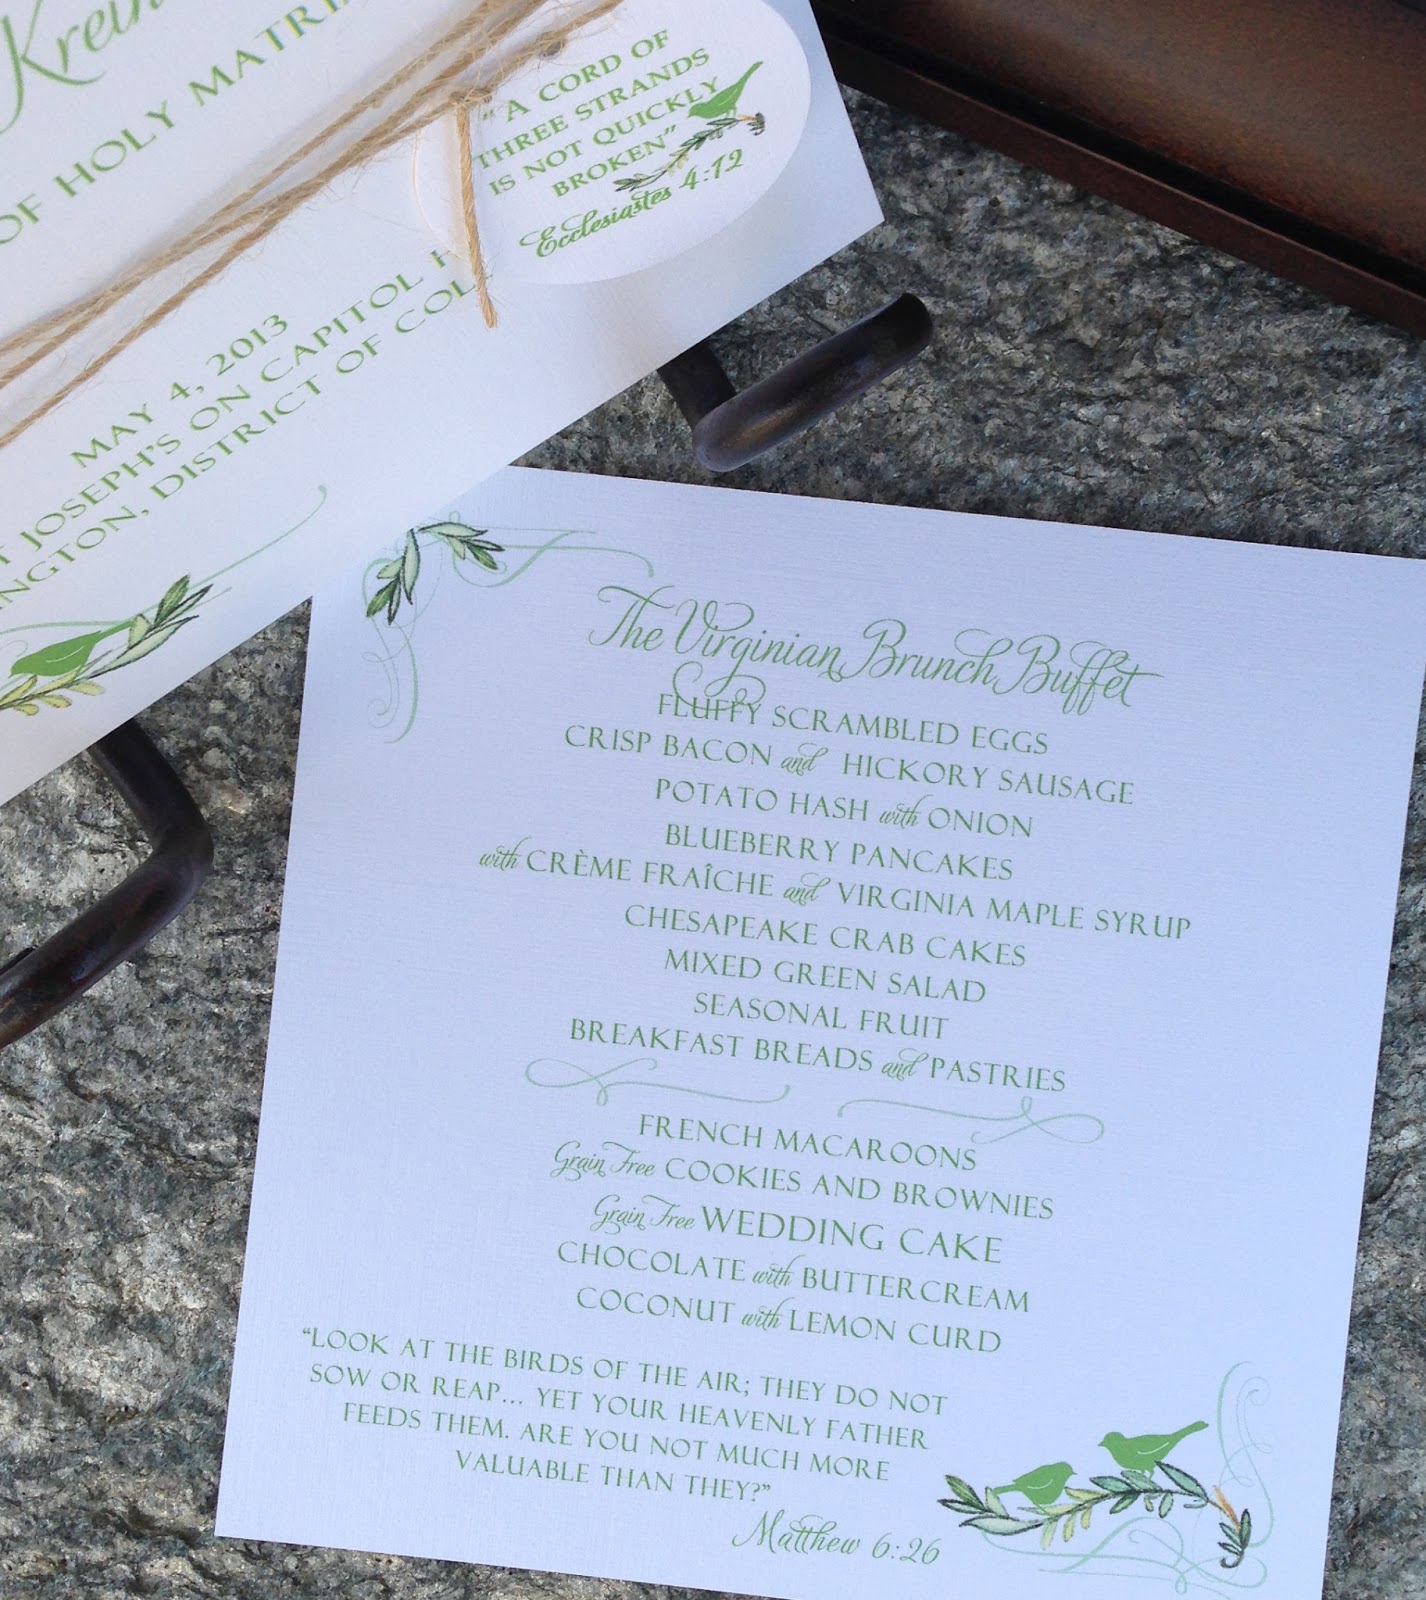 OF HOLY
"A CORD OF
THREE STRANDS
IS NOT QUICKLY
BROKEN"
Ecclesiastes 4:12
MAY 4, 2013
JOSEPH'S ON CAPITOL
DISTRICT OF
The Virginian Brunch Buffet
FLUFFY SCRAMBLED EGGS
CRISP BACON and HICKORY SAUSAGE
POTATO HASH with ONION
BLUEBERRY PANCAKES
with CRÈME FRAÎCHE and VIRGINIA MAPLE SYRUP
CHESAPEAKE CRAB CAKES
MIXED GREEN SALAD
SEASONAL FRUIT
BREAKFAST BREADS and PASTRIES
FRENCH MACAROONS
Grain Free COOKIES AND BROWNIES
Grain Free WEDDING CAKE
CHOCOLATE with BUTTERCREAM
COCONUT with LEMON CURD
"LOOK AT THE BIRDS OF THE AIR; THEY DO NOT
SOW OR REAP... YET YOUR HEAVENLY FATHER
FEEDS THEM. ARE YOU NOT MUCH MORE
VALUABLE THAN THEY?"
Matthew 6:26